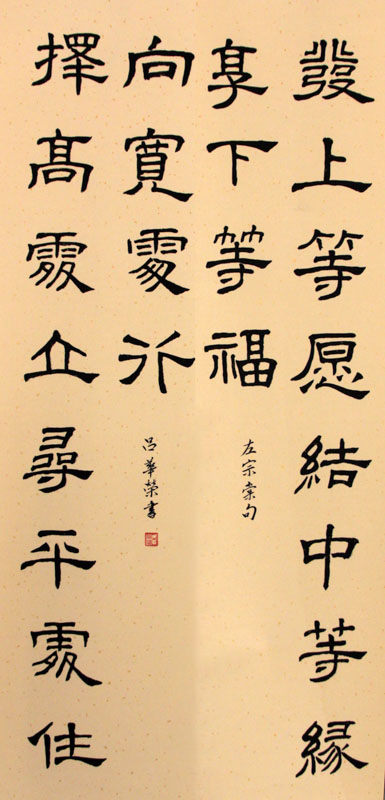 發上等愿結中等緣
享下等福
左宗棠句
擇髙處立尋平處住
向寬處行
呂華榮書